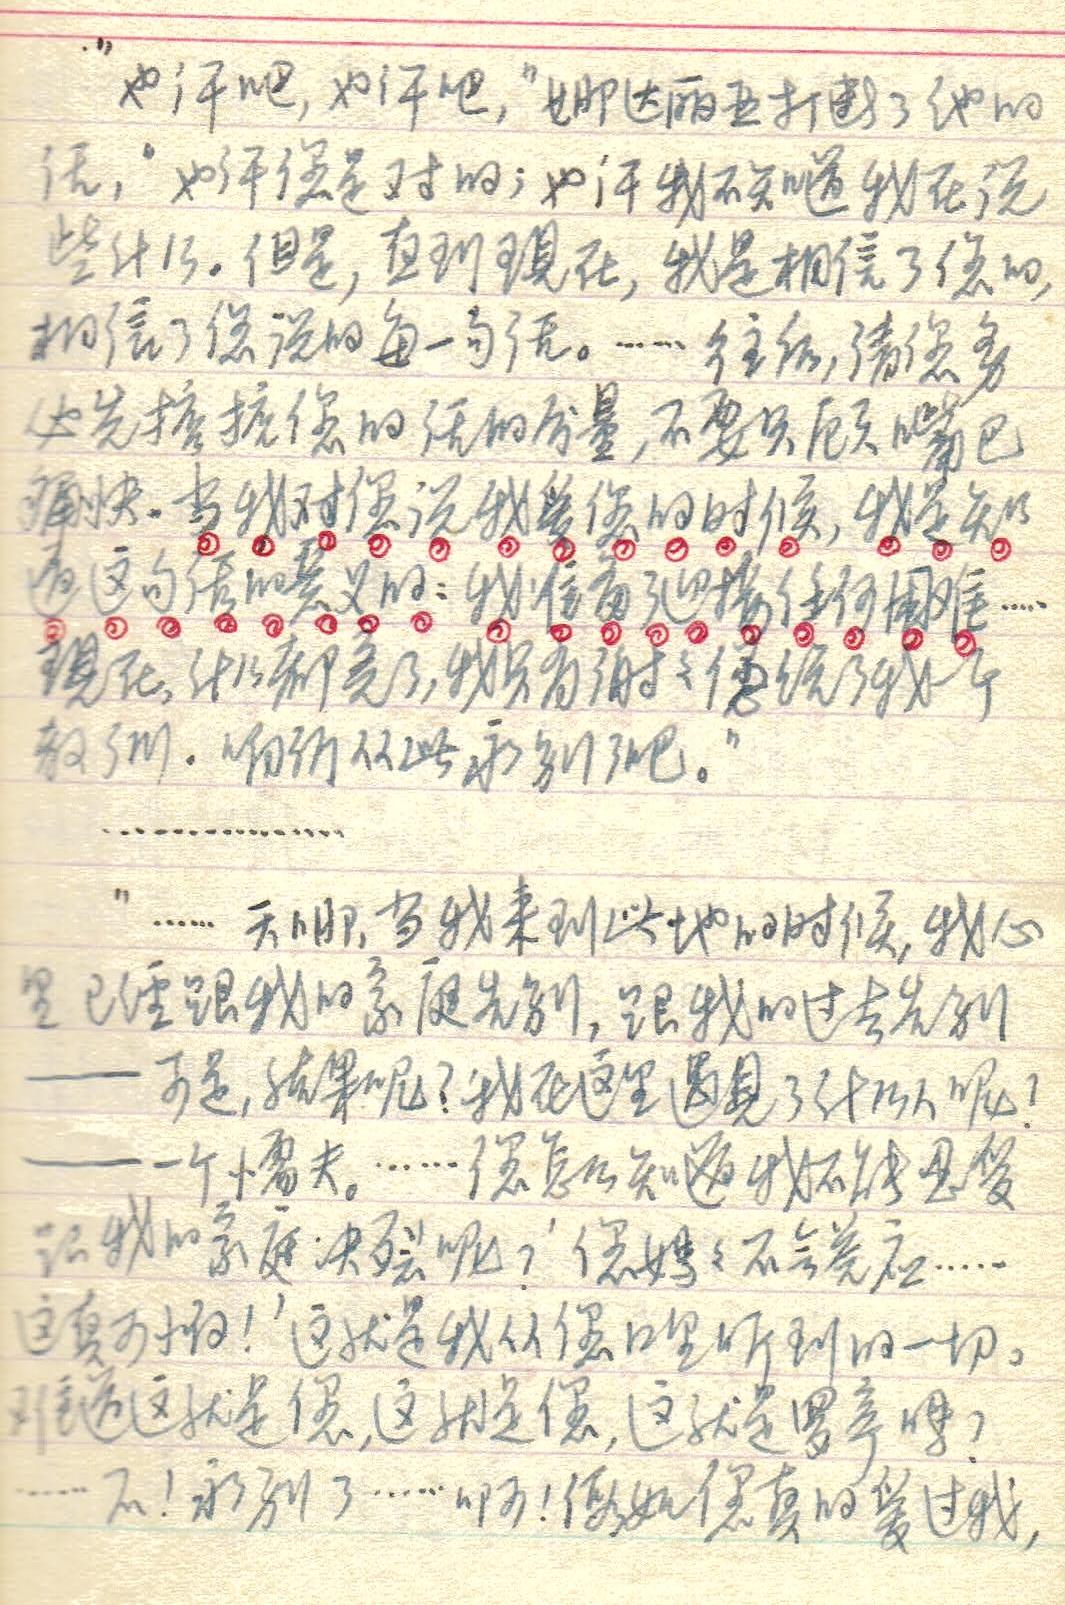 "也许吧,也许吧,"娜达丽亚打断了他的
话,"也许您是对的;也许我不知道我在说
些什么。但是,直到现在,我是相信了您的,
相信了您说的每一句话。……往后,请您务
必先掂掂您的话的分量,不要只顾嘴巴
痛快。当我对您说我爱您的时候,我是知
道这句话的意义的:我准备了迎接任何困难……
现在,什么都完了,我只有谢谢您给了我一个
教训。咱们从此永别了吧。"
……………
"……天哪,当我来到此地的时候,我心
里已经跟我的家庭告别,跟我的过去告别
——可是,结果呢?我在这里遇见了什么人呢?
——一个懦夫。……您怎么知道我不能忍受
跟我的家庭决裂呢?'您妈妈不会答应……
这真可怕!'这就是我从您口里听到的一切。
难道这就是您,这就是您,这就是罗亭吗?
……不!永别了……啊!假如您真的爱过我,